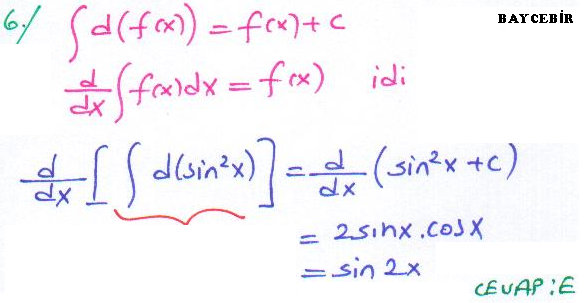 6./ ∫d(f(x)) = f(x)+c
BAYCEBİR
d/dx ∫f(x)dx = f(x) idi
d/dx [∫ d(sin²x)] = d/dx (sin²x+c)
= 2sinx.cosx
= sin 2x
CEVAP:E